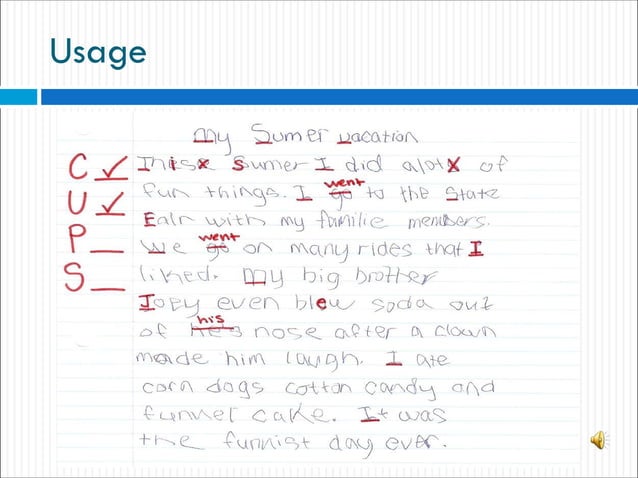 Usage
My Sumer vacation
C ✓ This Sumer I did alot of
went
U ✓ fun things. I go to the State
Fair with my familie members.
went
P _ We go on many rides that I
S _ liked. My big brother
Joey even blew soda out
his
of he's nose after a clown
made him laugh. I ate
corn dogs cotton candy and
funnel cake. It was
the funnist day ever.